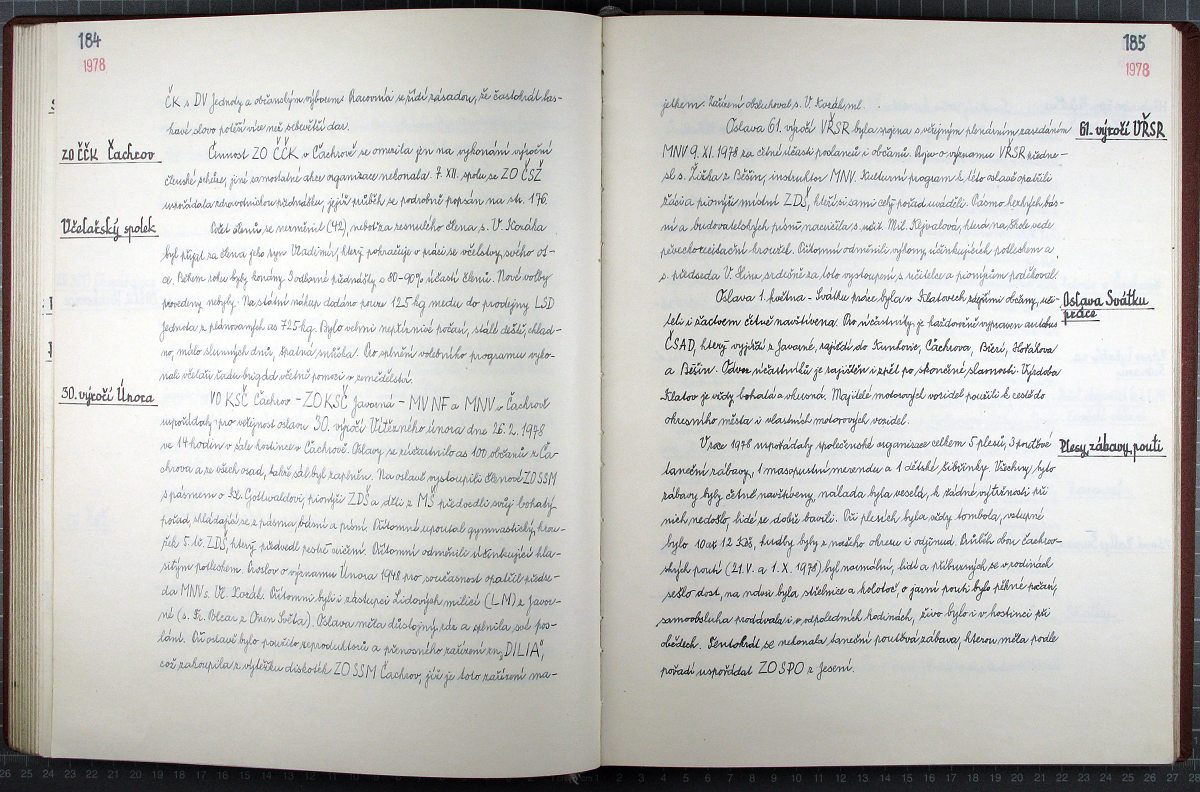 184
1978
ČK s DV Jednoty a občanským výborem. Pracovnia se řídí zásadou, že častokrát las-
kavé slovo potěší více než sebevětší dar.
ZO ČČK Čachrov
Činnost ZO ČČK v Čachrově se omezila jen na vykonání výroční
členské schůze, jiné samostatné akce organizace nekonala. 7. XII. spolu se ZO ČSŽ
uspořádala zdravotnickou přednášku, jejíž průběh je podrobně popsán na str. 176.
Včelařský spolek
Počet členů se nezměnil (42), neboť za zesnulého člena s. V. Korába
byl přijat za člena jeho syn Vladimír, který pokračuje v práci se včelstvy svého ot-
ce. Během roku byly konány odborné přednášky s 80-90% účastí členů. Nové volby
provedeny nebyly. Na státní nákup dodáno pouze 125 kg medu do prodejny LSD
Jednota z plánovaných as 725 kg. Bylo velmi nepříznivé počasí, stálé deště, chlad-
no, málo slunných dnů, špatná snůška. Pro splnění volebního programu vyko-
nali včelaři řadu brigád včetně pomoci v zemědělství.
30. výročí Února
VO KSČ Čachrov - ZO KSČ Javorná - MV NF a MNV v Čachrově
uspořádaly pro veřejnost oslavu 30. výročí Vítězného února dne 26. 2. 1978
ve 14 hodin v sále hostince v Čachrově. Oslavy se zúčastnilo as 100 občanů z Ča-
chrova a ze všech osad, takže sál byl zaplněn. Na oslavě vystoupili členové ZO SSM
s pásmem o Kl. Gottwaldovi, pionýři ZDŠ a děti z MŠ předvedli svůj bohatý
pořad skládající se z pásma básní a písní. Přítomné upoutal gymnastický krou-
žek 5. tř. ZDŠ, který předvedl pestré cvičení. Přítomní odměnili účinkující hla-
sitým potleskem. Proslov o významu Února 1948 pro současnost opatřil předse-
da MNV s. Vl. Koráb. Přítomni byli i zástupci Lidových milicí (LM) z Javor-
né (s. Fr. Blcar z Onen Světa). Oslava měla důstojný ráz a splnila své pos-
lání. Při oslavě bylo použito reproduktorů a přenosného zařízení zn. "DILIA",
což zakoupila z výtěžku diskoték ZO SSM Čachrov, jíž je toto zařízení ma-
185
1978
jetkem. Zařízení obsluhoval s. V. Koráb ml.
61. výročí VŘSR
Oslava 61. výročí VŘSR byla spjena s veřejným plenárním zasedáním
MNV 9. XI. 1978 za četné účasti poslanců i občanů. Projev o významu VŘSR předne-
sl s. Žižka z Běšin, instruktor MNV. Kulturní program k této oslavě opatřili
žáci a pionýři místní ZDŠ, kteří si sami celý pořad uváděli. Pásmo hezkých bás-
ní a budovatelských písní nacvičila s. učit. Mil. Kejvalová, která na škole vede
pěvecko recitační kroužek. Přítomní odměnili výkony účinkujících potleskem a
s. předseda V. Hine srdečně za toto vystoupení s. učitelce a pionýrům poděkoval.
Oslava Svátku práce
Oslava 1. května - Svátku práce, byla v Klatovech zdejšími občany, uči-
teli i žactvem četně navštívena. Pro účastníky je každoročně vypraven autobus
ČSAD, který vyjíždí z Javorné, zajíždí do Kunkovic, Čachrova, Březí, Chvalšova
a Běšin. Odvoz účastníků je zajištěn i zpět po skončené slavnosti. Výzdoba
Klatov je vždy bohatá a vkusná. Majitelé motorových vozidel použili k cestě do
okresního města i vlastních motorových vozidel.
Plesy, zábavy, pouti
V roce 1978 uspořádaly společenské organizace celkem 5 plesů, 3 pouťové
taneční zábavy, 1 masopustní merendu a 1 dětské šibřinky. Všechny tyto
zábavy byly četně navštíveny, nálada byla veselá, k žádné výtržnosti při
nich nedošlo, lidé se dobře bavili. Při plesích byla vždy tombola, vstupné
bylo 10 až 12 Kčs, hudby byly z našeho okresu i odjinud. Průběh obou čachrov-
ských poutí (21. V. a 1. X. 1978) byl normální, lidí a příbuzných se v rodinách
sešlo dost, na návsi byla střelnice a kolotoč, o jarní pouti bylo pěkné počasí,
samoobsluha prodávala i v odpoledních hodinách, živo bylo i v hostinci při
obědech. Tentokrát se nekonala taneční pouťová zábava, kterou měla podle
pořadí uspořádat ZO SPO z Jesení.